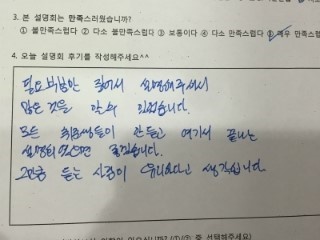 3. 본 설명회는 만족스러웠습니까?
① 불만족스럽다 ② 다소 불만족스럽다 ③ 보통이다 ④ 다소 만족스럽다 ⑤ 매우 만족스럽
4. 오늘 설명회 후기를 작성해주세요^^
필요부분만 집어서 설명해주셔서
많은 것을 알 수 있었습니다.
모든 취준생들이 안 듣고 여기서 끝나는
설명회였으면 좋겠습니다.
그만큼 듣는 사람이 유리하다고 생각합니다.
선택해주세요)